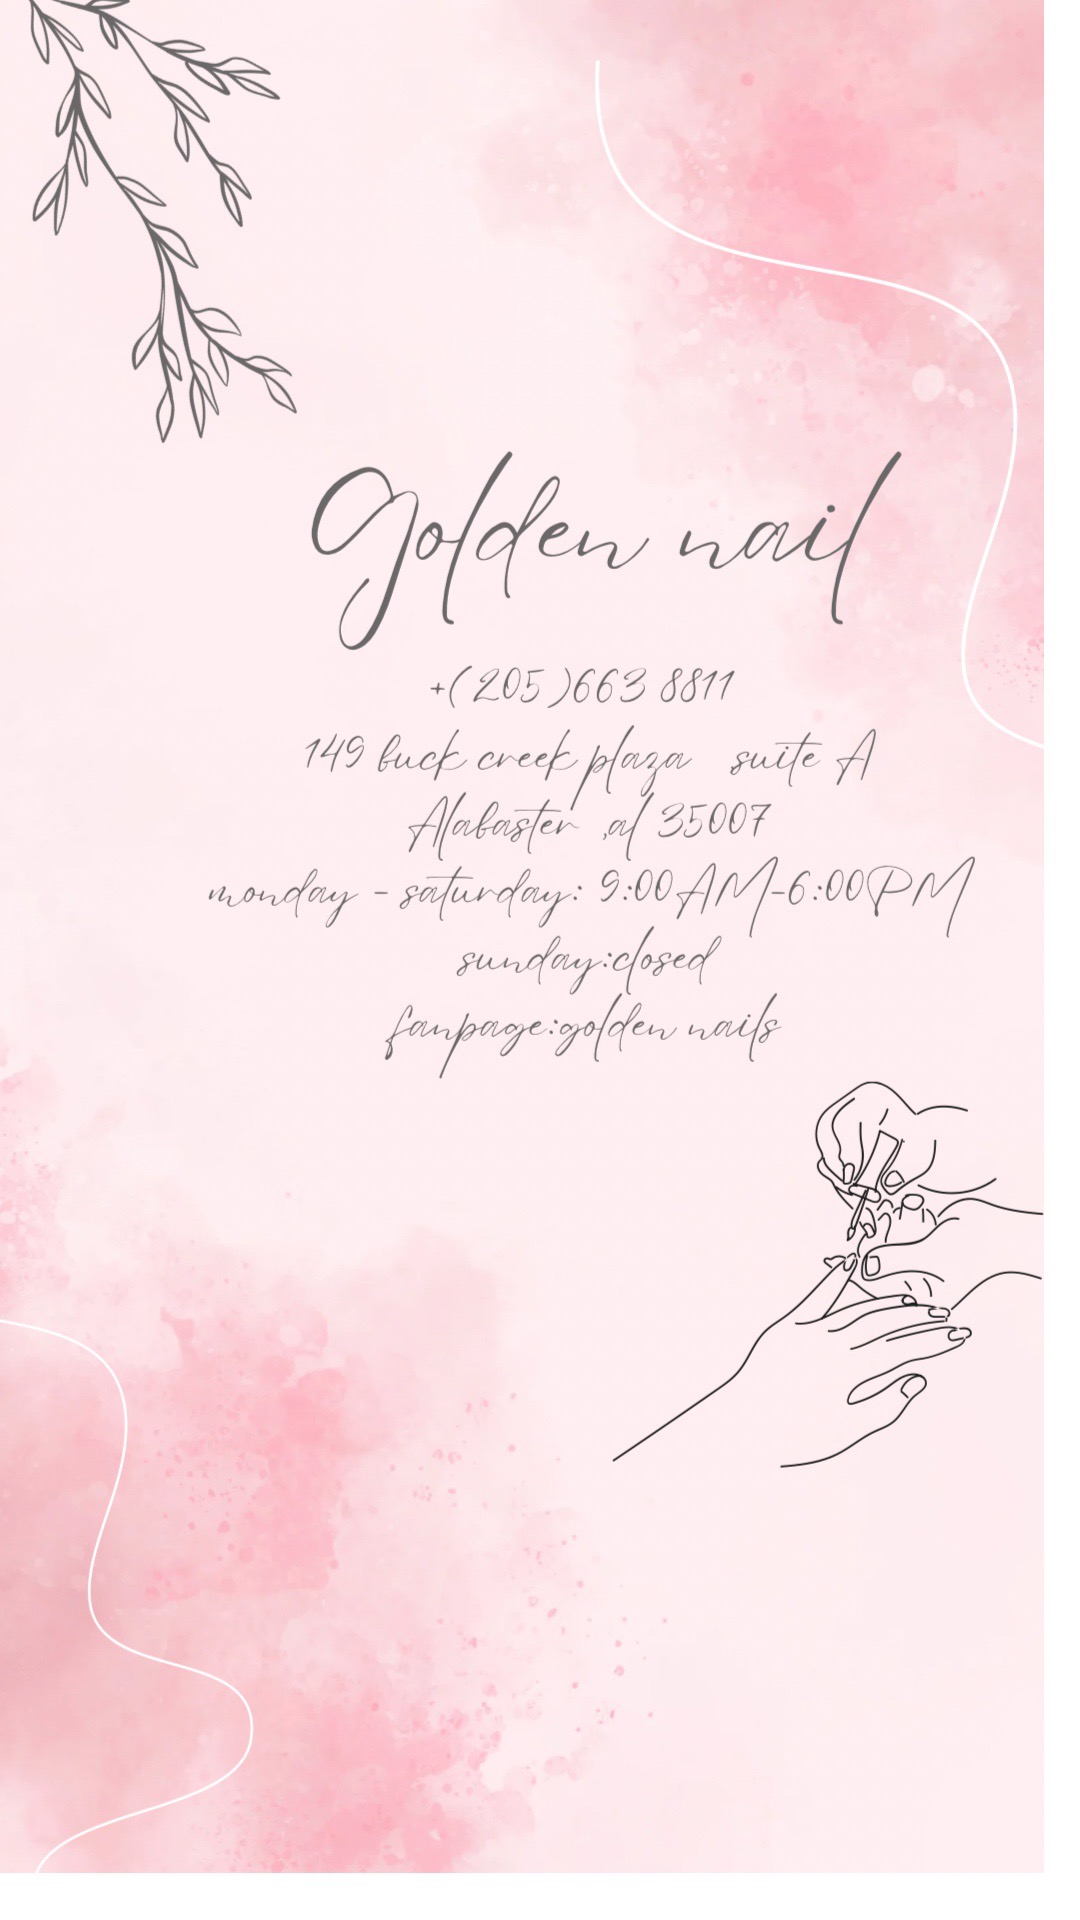 golden nail
+( 205 )663 8811
149 buck creek plaza ,suite A
Alabaster ,al 35007
monday - saturday: 9:00AM-6:00PM
sunday:closed
fanpage:golden nails